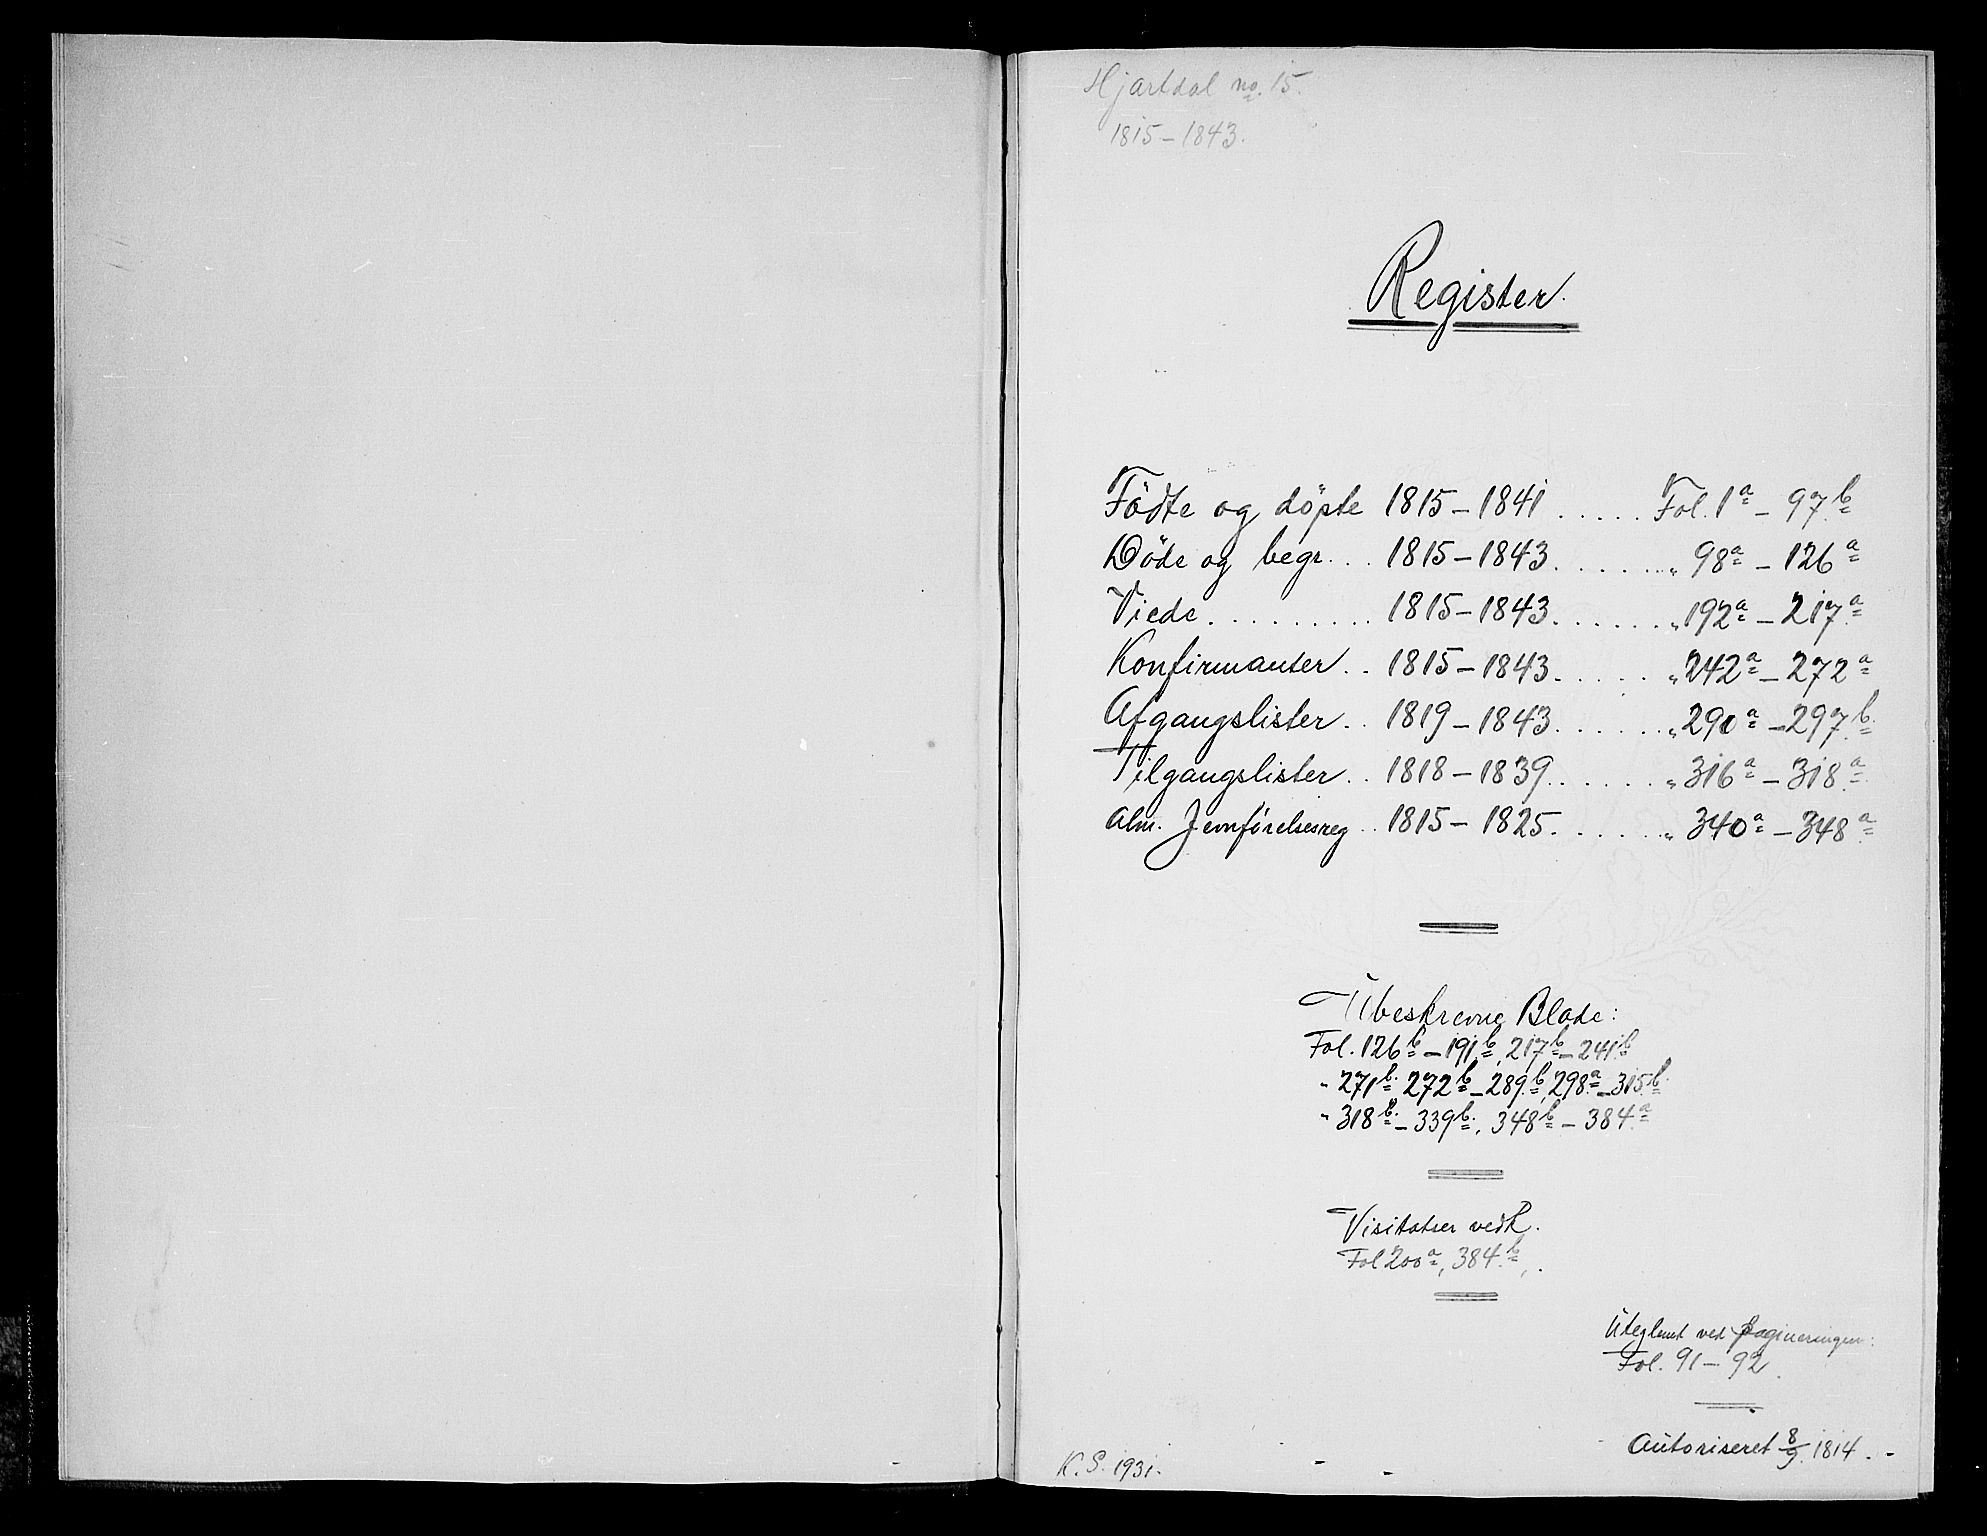 Hjartdal no. 15.
1815-1843.
Register.
Födte og döpte 1815-1841 ..... Fol. 1a - 97b
Döde og begr... 1815-1843....... „ 98a - 126a
Viede.......... 1815-1843....... „ 192a - 217a
Konfirmanter.. 1815-1843...... „ 242a - 272a
Afgangslister.. 1819-1843....... „ 290a - 297b.
Tilgangslister.. 1818-1839....... „ 316a - 318a.
Alm. Jemførelsesreg.. 1815-1825....... „ 340a - 348a.
Ubeskrevne Blade:
Fol. 126b - 191b, 217b - 241b
„ 271b. 272b - 289b, 298a - 315b.
„ 318b. - 339b., 348b - 384a
Visitatser vedk.
Fol 200a, 384b,.
Uteglemt ved Pagineringen:
Fol. 91-92.
Autoriseret 8/9. 1814.
K. S. 1931.